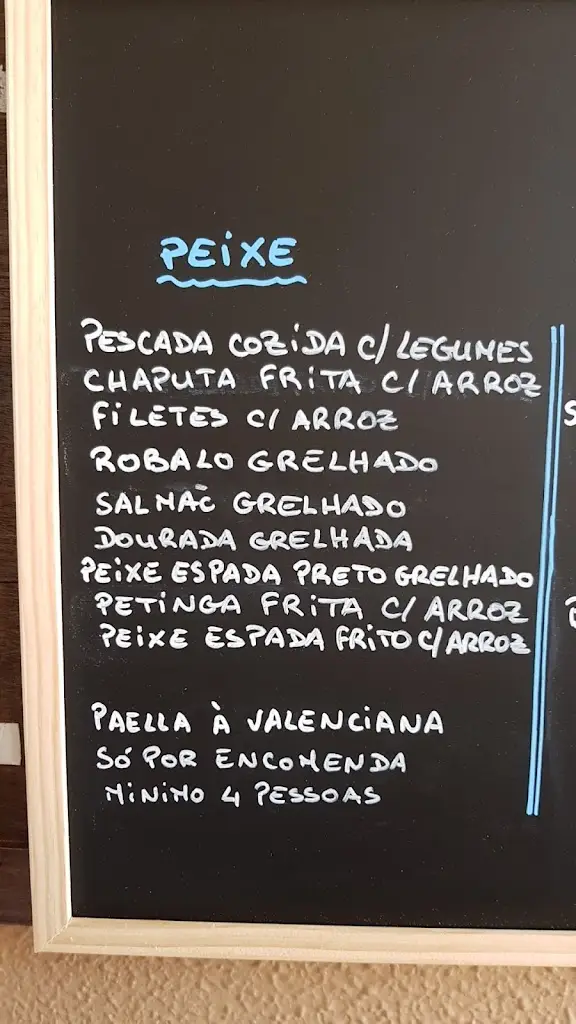 PEIXE
PESCADA COZIDA C/ LEGUMES
CHAPUTA FRITA C/ ARROZ
FILETES C/ ARROZ
ROBALO GRELHADO
SALMÃO GRELHADO
DOURADA GRELHADA
PEIXE ESPADA PRETO GRELHADO
PETINGA FRITA C/ ARROZ
PEIXE ESPADA FRITO C/ ARROZ
PAELLA À VALENCIANA
SÓ POR ENCOMENDA
MINIMO 4 PESSOAS